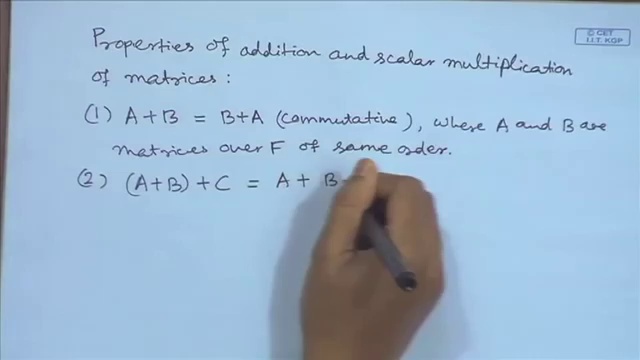 © CET
I.I.T. KGP
Properties of addition and scalar multiplication
of matrices :
(1) A+B = B+A (commutative), where A and B are
matrices over F of same order.
(2) (A+B) + C = A + B